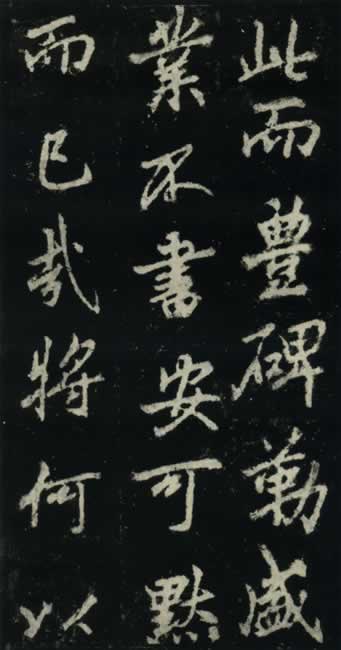 此而豊碑勒盛
業不書安可默
而已哉將何以